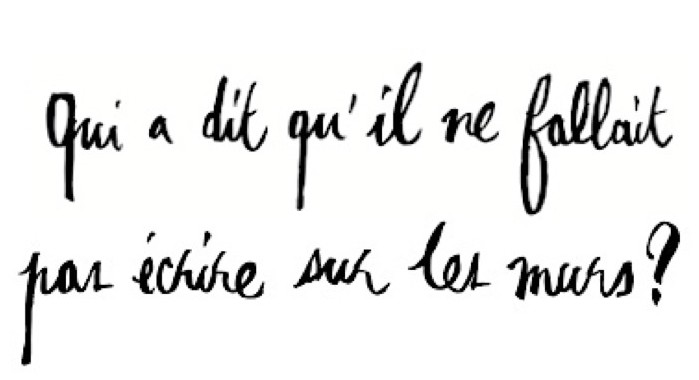 Qui a dit qu'il ne fallait
pas écrire sur les murs?